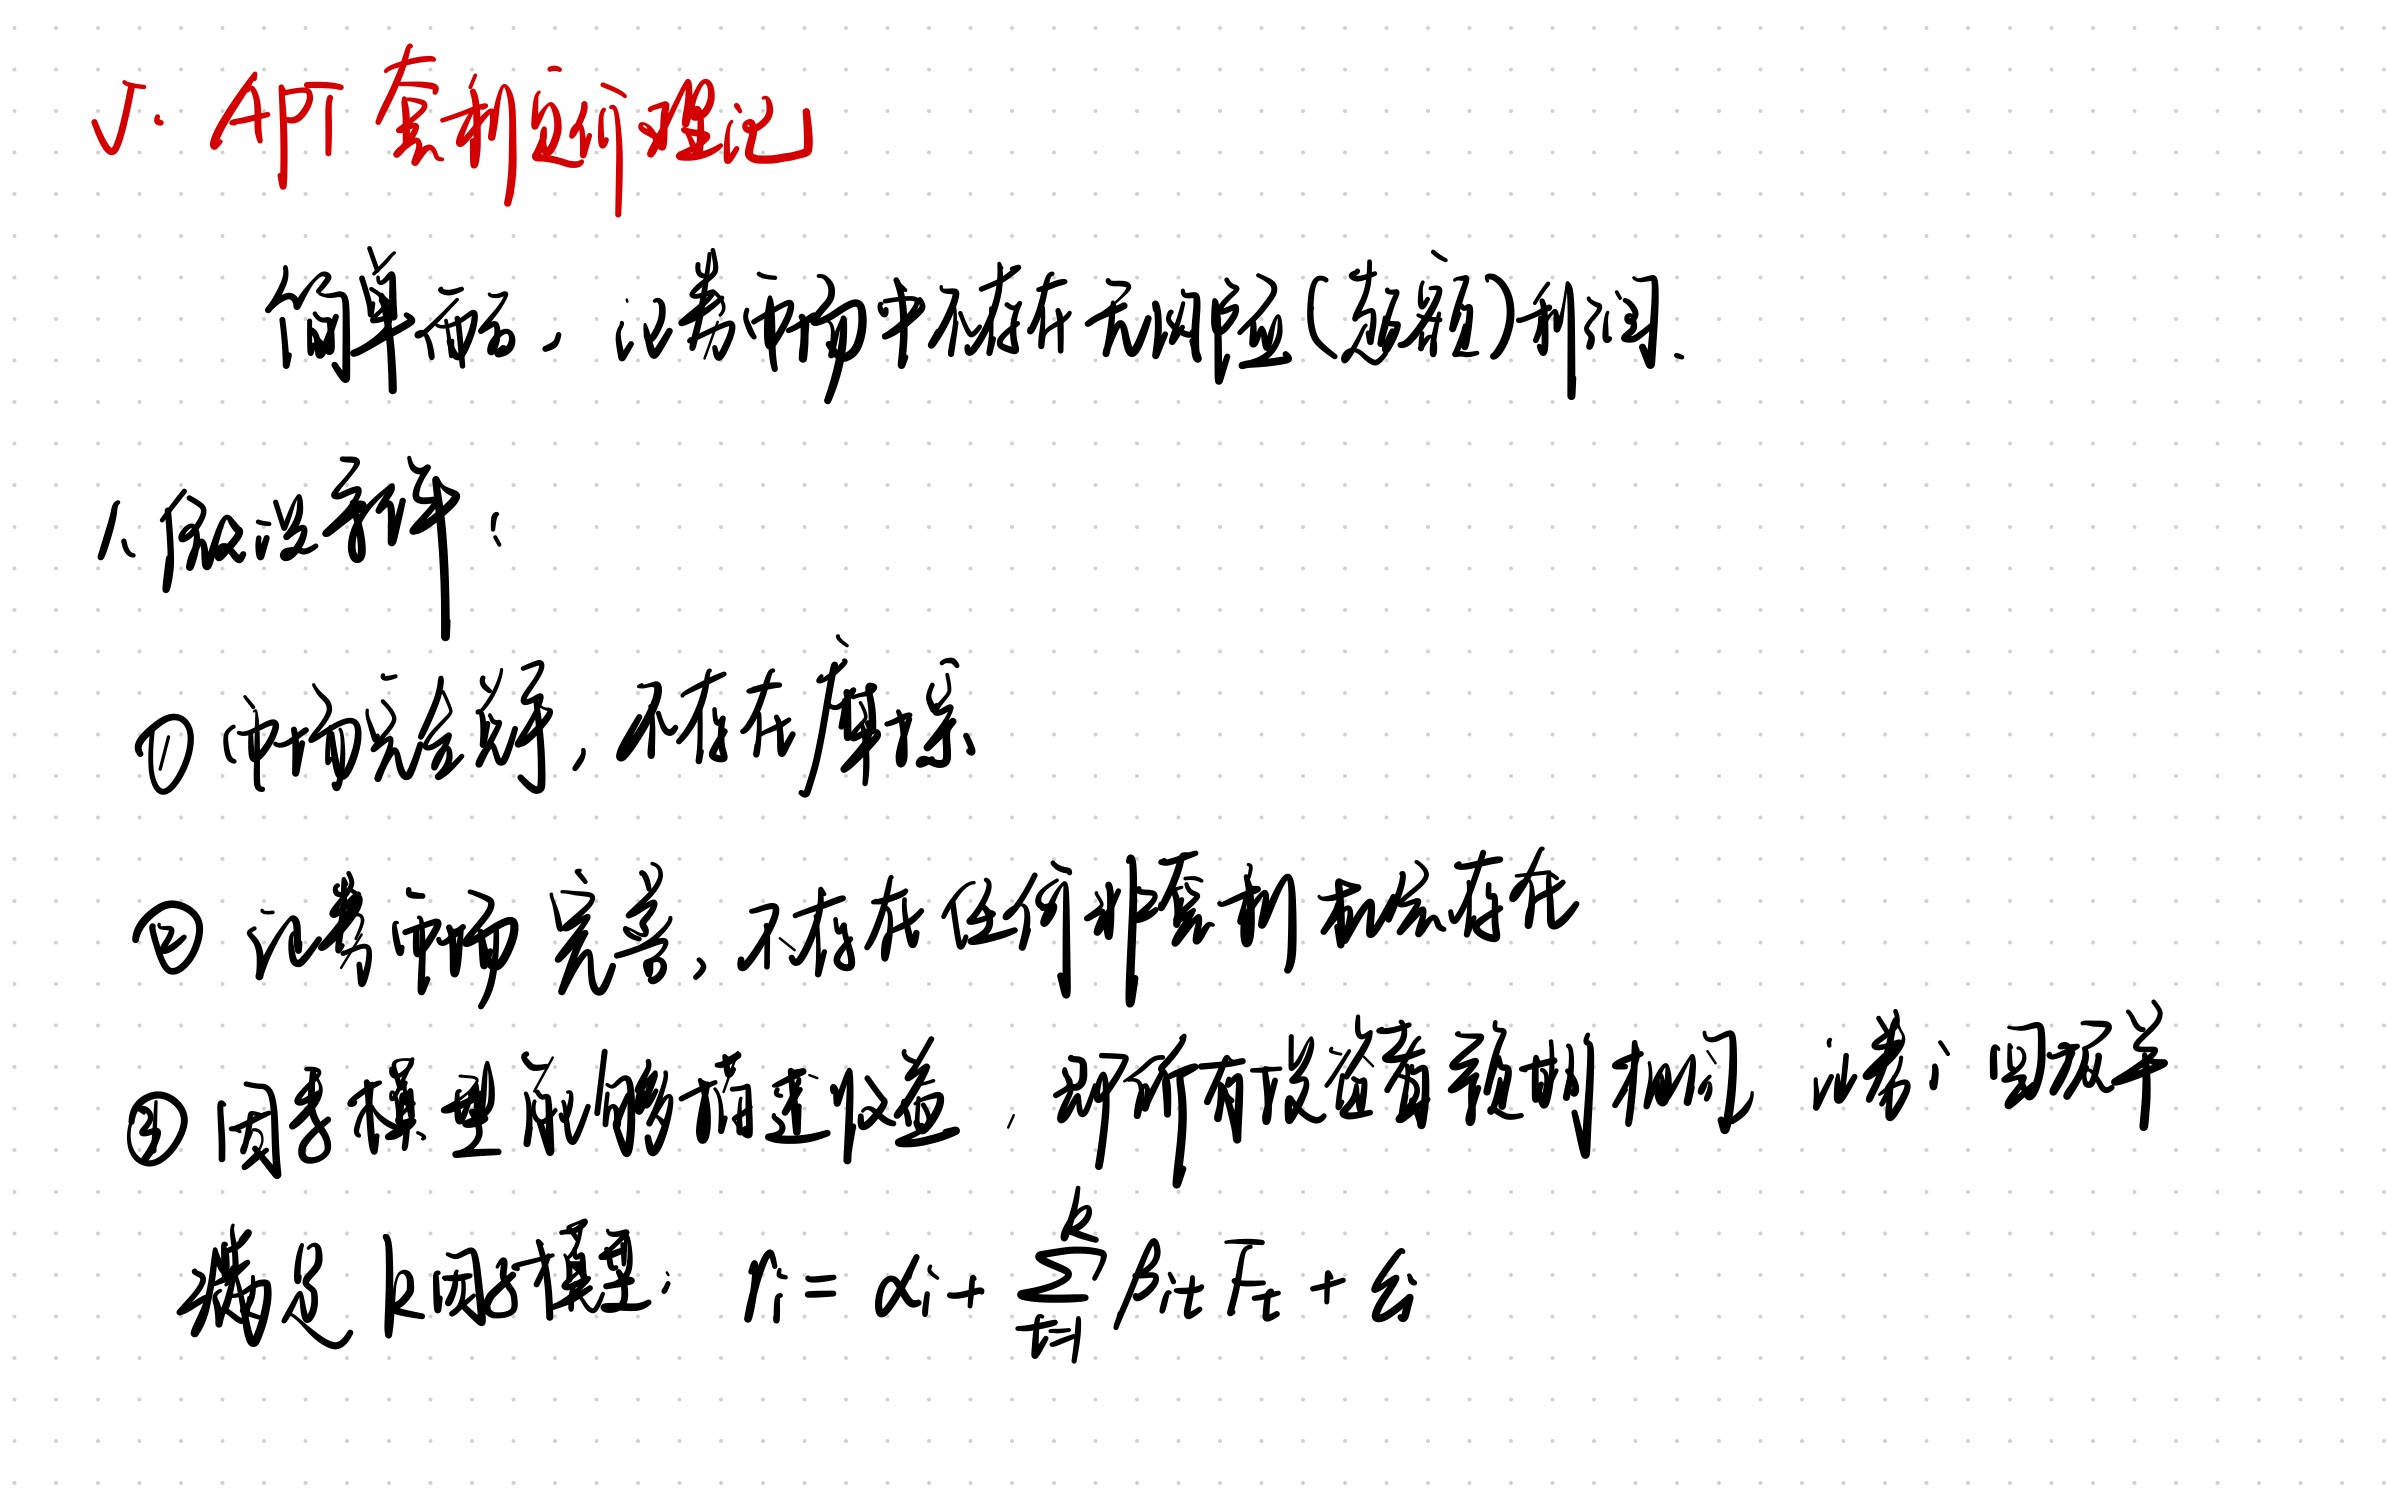 √. APT 套利定价理论
简单而言，证券市场中不存在无风险(超额)利润.
1. 假设条件：
① 市场完全竞争，不存在摩擦
② 证券市场完善，不存在任何非套利机会存在
③ 因素模型能够描述收益，即所有投资者预期相同，证券 i 回报率
满足 k 因素模型: r_i = α_i + Σ_{t=1}^{k} β_{it} F_t + ε_i